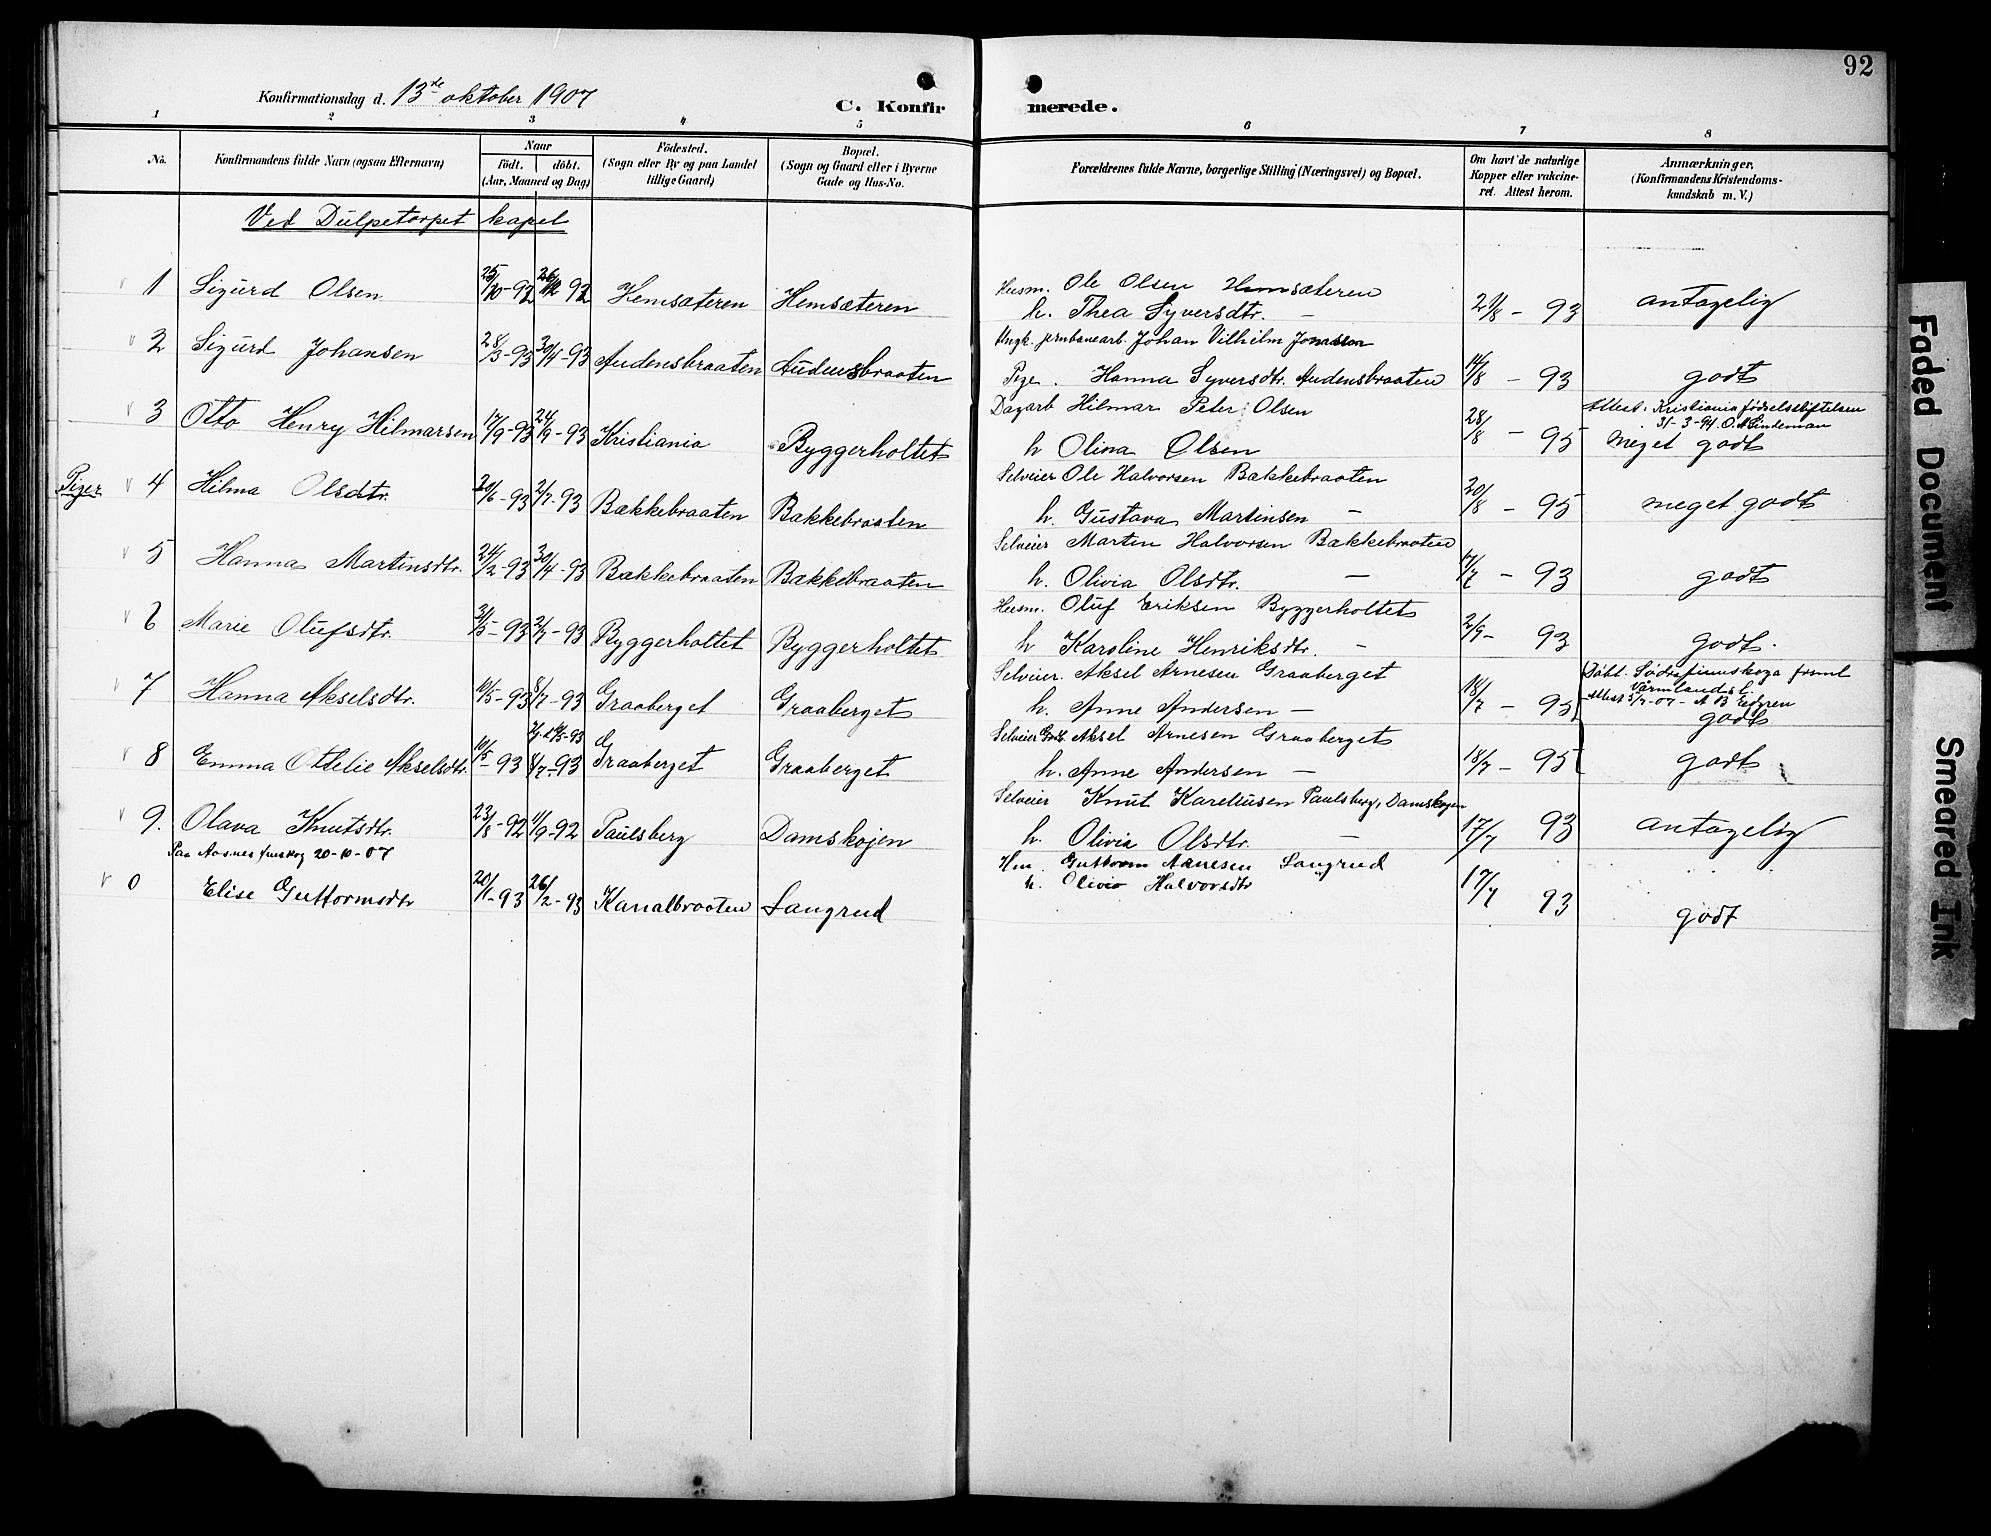 92
Konfirmationsdag d. 13de oktober 1907
C. Konfirmerede.
1 2 3 4 5 6 7 8
No. Konfirmandens fulde Navn (ogsaa Efternavn) Naar födt. döbt. (Aar, Maaned og Dag) Födested. (Sogn eller By og paa Landet tillige Gaard) Bopæl. (Sogn og Gaard eller i Byerne Gade og Hus-No. Forældrenes fulde Navne, borgerlige Stilling (Næringsvei) og Bopæl. Om havt de naturlige Kopper eller vakcineret. Attest herom. Anmærkninger. (Konfirmandens Kristendomskundskab m. V.)
Ved Dulpetorpet kapel
1 Sigurd Olsen 25/10-92 92 Hemsæteren Hemsæteren Husm. Ole Olsen Hemsæteren
h. Thea Syversdtr. - 21/8 - 93 antagelig
2 Sigurd Johansen 28/3-93 30/4-93 Audensbraaten Audensbraaten Ungk. jernbanearb. Johan Vilhelm Jonassen
Pige. Hanna Syversdtr. Audensbraaten 14/8 - 93 godt
3 Otto Henry Hilmarsen 17/9-93 24/9-93 Kristiania Byggerholtet Dagarb Hilmar Peter Olsen
h Olina Olsen 28/8 - 95 Attest: Kristiania fødselsstiftelsen
31-3-94 O. A Lindeman
meget godt
Piger 4 Hilma Olsdtr. 20/6-93 2/7-93 Bakkebraaten Bakkebraaten Selveier Ole Halvorsen Bakkebraaten
h. Gustava Martinsen - 20/8 - 95 meget godt
5 Hanna Martinsdtr. 24/2-93 30/4-93 Bakkebraaten Bakkebraaten Selveier Martin Halvorsen Bakkebraaten
h. Olivia Olsdtr. - 17/7 - 93 godt
6 Marie Olufsdtr. 31/5-93 2/7-93 Byggerholtet Byggerholtet Husm. Oluf Eriksen Byggerholtet
h Karoline Henriksdtr. - 2/9- 93 godt.
7 Hanna Akselsdtr. 10/5-93 8/7-93 Graaberget Graaberget Selveier. Aksel Arnesen Graaberget
h. Anne Andersen - 18/7 - 95 Døbt. Södra finnskoga
Värmland
Attest 5/7-07 - A B Elfgren
godt
8 Emma Ottelie Akselsdtr. 10/5-93 8/7-93 Graaberget Graaberget Selveier Aksel Arnesen Graaberget
h. Anne Andersen - 18/7 - 95 godt
9. Olava Knutsdtr. 23/8-92 11/9-92 Paulsberg Damskojen Selveier Knut Kareliusen Paulsberg, Damskojen
h. Olivia Olsdtr. - 17/7 93 antagelig
Paa Aasnes finskog 20-10-07
0 Elise Guttormsdtr 20/1-93 26/2-93 Kanalbraaten Langrud Hm. Guttorm Arnesen Langrud
h. Olivia Halvorsdtr 17/7 93 godt
Faded Document
Smeared Ink